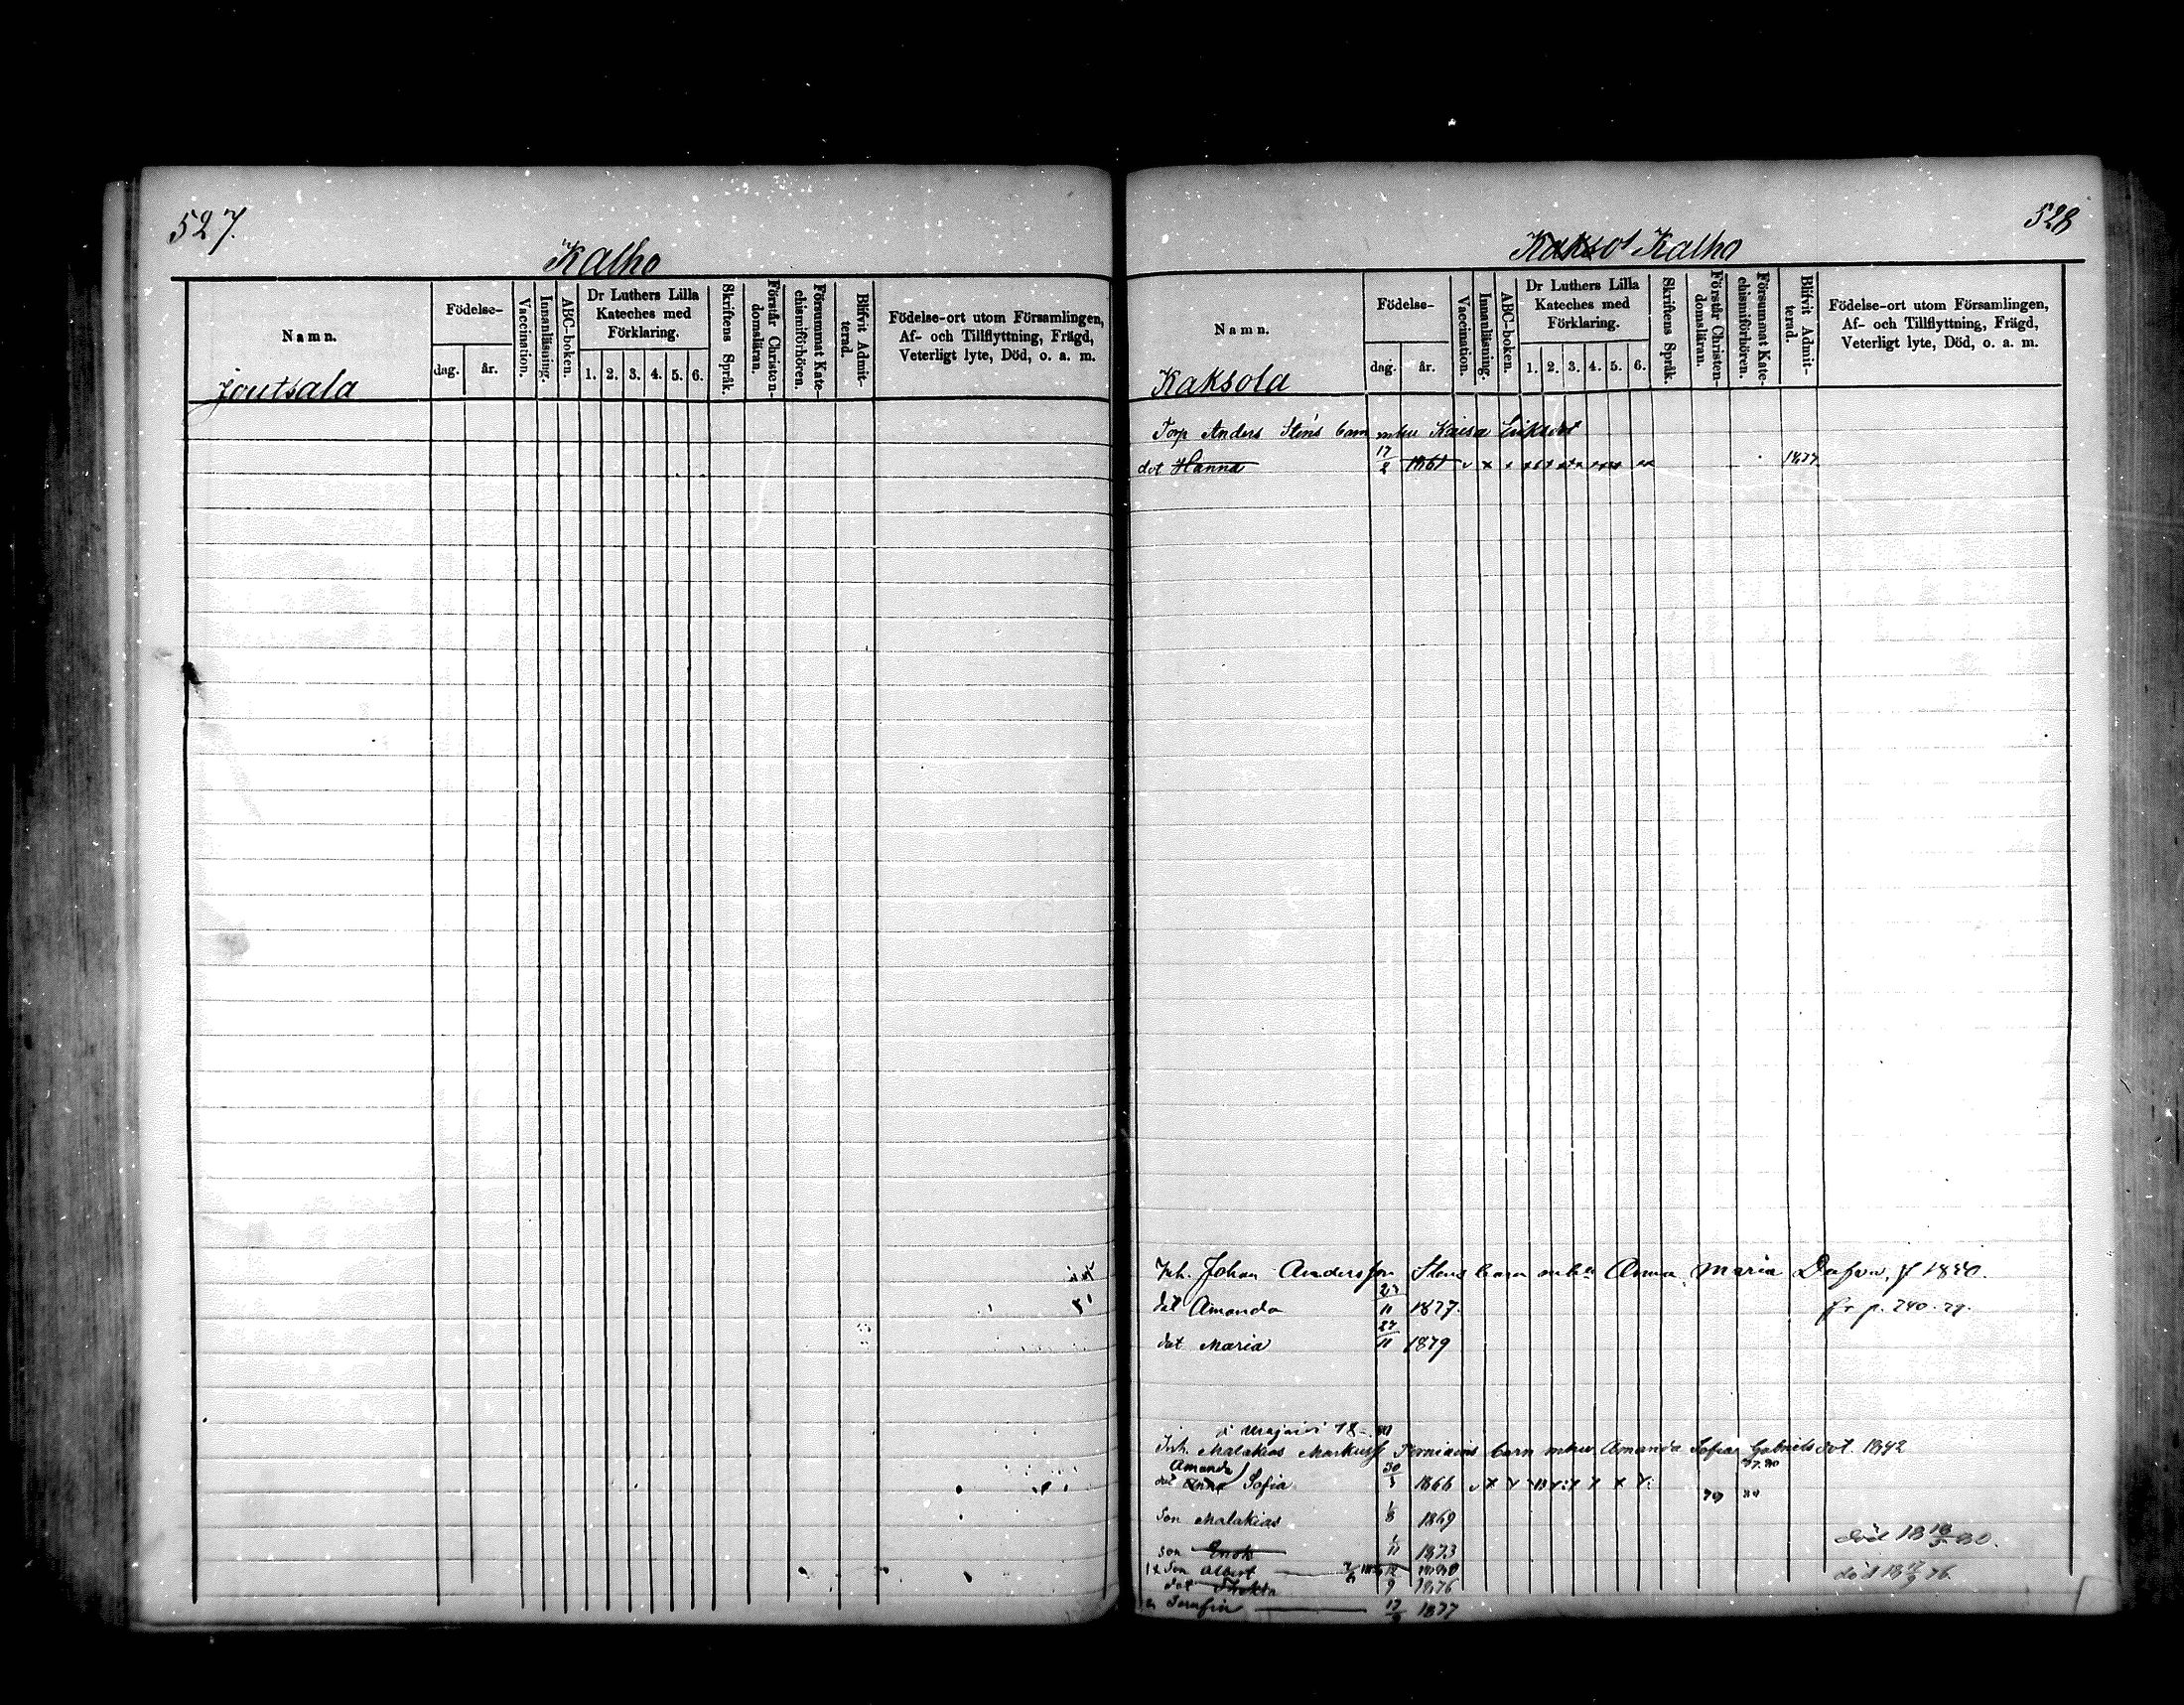 527.
Kalho
Namn.
Födelse-
dag.
år.
Vaccination.
Innanläsning.
ABC-boken.
Dr Luthers Lilla
Kateches med
Förklaring.
1. 2. 3. 4. 5. 6.
Skriftens Språk.
Förstår Christen-
domsläran.
Försummat Kate-
chismiförhören.
Blifvit Admit-
terad.
Födelse-ort utom Församlingen,
Af- och Tillflyttning, Frägd,
Veterligt lyte, Död, o. a. m.
Joutsala
528
Kalho
Namn.
Födelse-
dag.
år.
Vaccination.
Innanläsning.
ABC-boken.
Dr Luthers Lilla
Kateches med
Förklaring.
1. 2. 3. 4. 5. 6.
Skriftens Språk.
Förstår Christen-
domsläran.
Försummat Kate-
chismiförhören.
Blifvit Admit-
terad.
Födelse-ort utom Församlingen,
Af- och Tillflyttning, Frägd,
Veterligt lyte, Död, o. a. m.
Kaksola
Torp Anders Stens barn mhu Kaisa Eriksdot
dot Hanna 17/2 1861 1877
Inh. Johan Andersson Stens barn Anna Maria 1850.
dot Amanda 1877. fr p. 240.
dot Maria 27/11 1879
Inh. Malakias barn mhu Amanda Sofia Gabrielsdot. 1842
Amanda
dot Sofia 1866
Son Malakias 1/8 1869
son Enok 1/11 1873 död
Son Albert
dot 9 1876 död
Serafia 17 1877